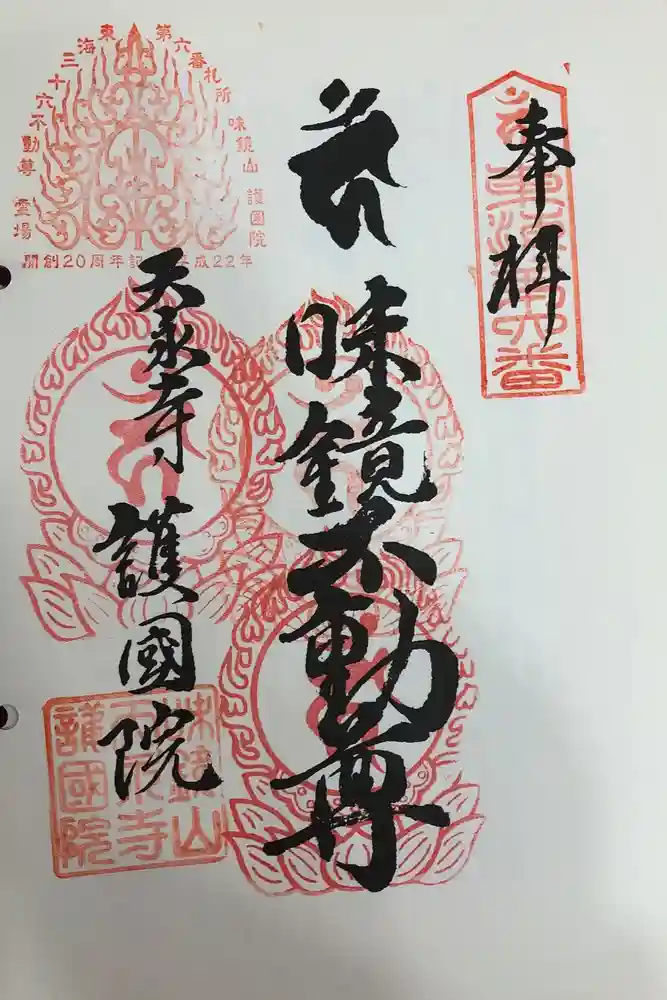 奉拝
東海第六番
味鏡不動尊
天永寺護國院
東海三十六不動尊
靈場
第六番札所
味鏡山
護國院
開創20周年記
成22年
味鏡山
天永寺
護國院